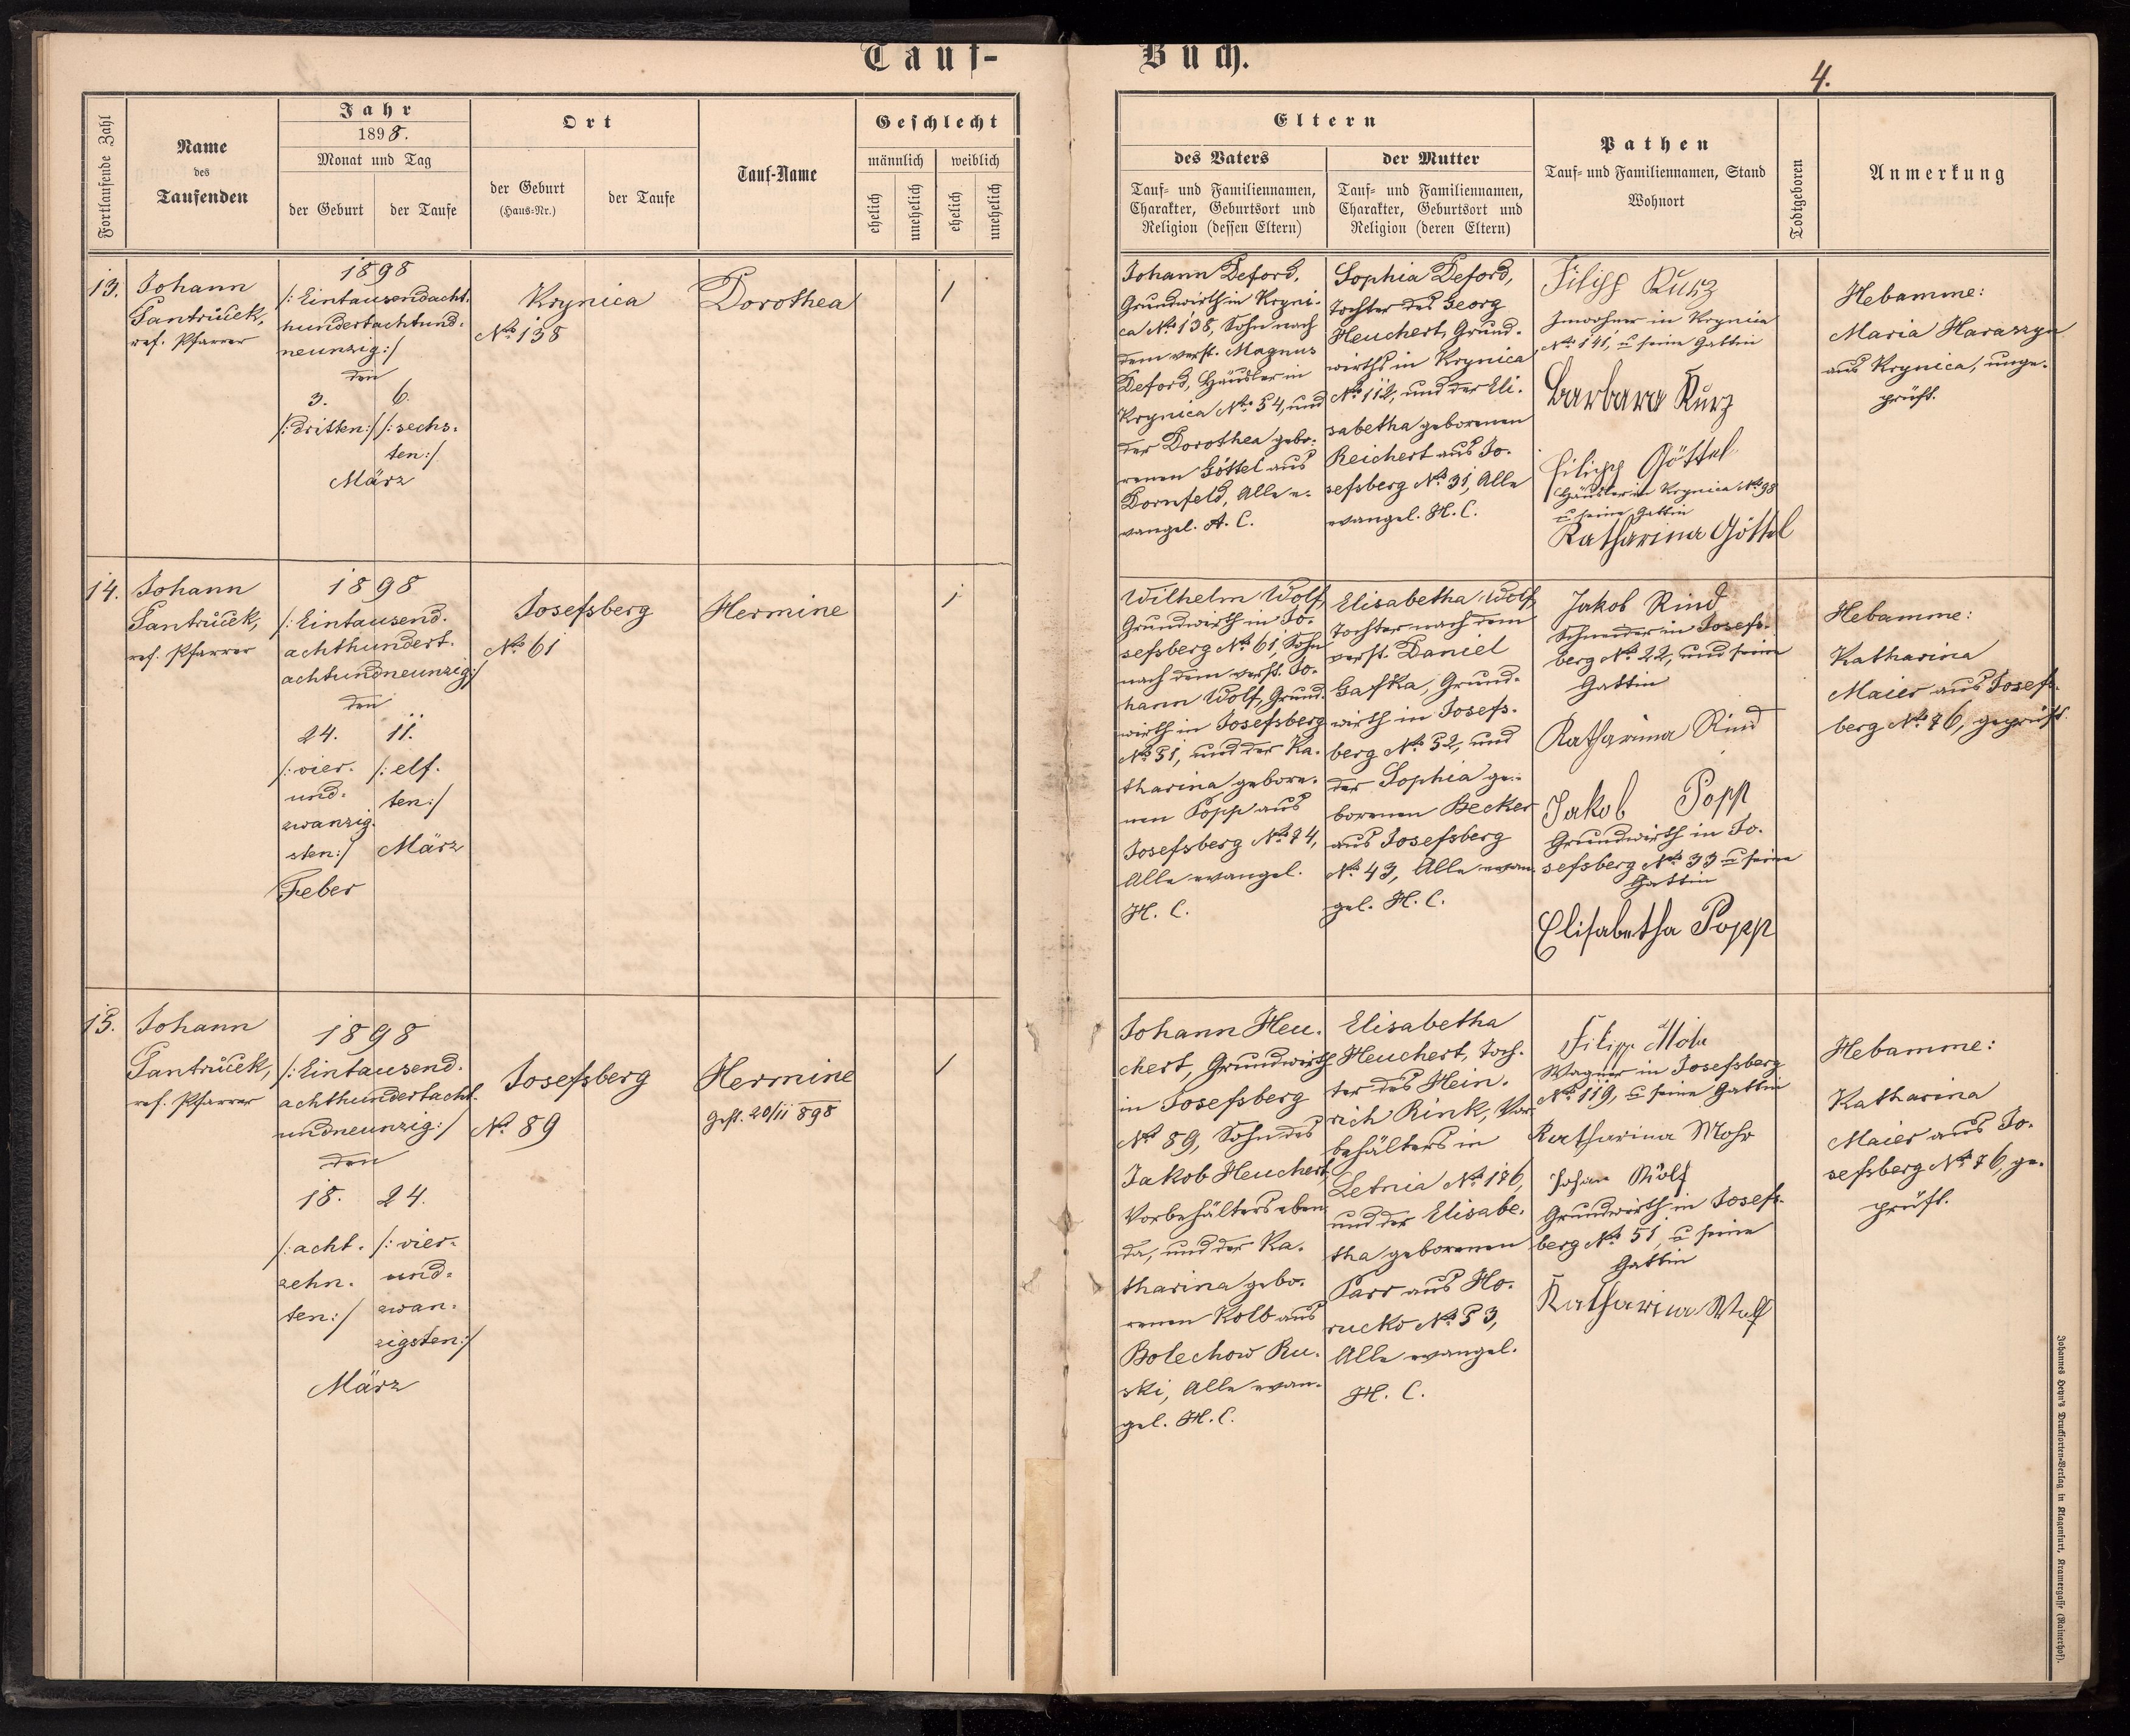 Tauf-
Buch.
4.
Fortlaufende Zahl
Name
des
Taufenden
Jahr
1898.
Monat und Tag
der Geburt
der Taufe
Ort
der Geburt
(Haus-Nr.)
der Taufe
Tauf-Name
Geschlecht
männlich
weiblich
ehelich
unehelich
ehelich
unehelich
Eltern
des Vaters
Tauf- und Familiennamen,
Charakter, Geburtsort und
Religion (dessen Eltern)
der Mutter
Tauf- und Familiennamen,
Charakter, Geburtsort und
Religion (deren Eltern)
Pathen
Tauf- und Familiennamen, Stand
Wohnort
Todtgeboren
Anmerkung
13.
Johann
Fantrücek,
ref. Pfarrer
1898
/: Eintausendacht-
hundertachtund-
neunzig:/
den
3.
/: dritten:/
6.
/: sechs-
ten:/
März
Krynica
No 138
Dorothea
1
Johann Deford,
Grundwirth in Kryni-
ca No 138, Sohn nach
dem verst. Magnus
Deford, Häusler in
Krynica No 54, und
der Dorothea gebo-
renen Göttel aus
Dornfeld, Alle e-
vangel. A. C.
Sophia Deford,
Tochter des Georg
Heuchert, Grund-
wirths in Krynica
No 112, und der Eli-
sabetha geborenen
Reichert aus Jo-
sefsberg No 31, Alle
evangel. H. C.
Filipp Kurz
Inwohner in Krynica
No 141, u seine Gattin
Barbara Kurz
Filipp Göttel
Häusler in Krynica No 98
u seine Gattin
Katharina Göttel
Hebamme:
Maria Harazyn
aus Krynica, unge-
prüft.
14.
Johann
Fantrücek,
ref. Pfarrer
1898
/: Eintausend-
achthundert-
achtundneunzig:/
den
24.
/: vier-
und-
zwanzig-
sten:/
Feber
11.
/: elf-
ten:/
März
Josefsberg
No 61
Hermine
1
Wilhelm Wolf,
Grundwirth in Jo-
sefsberg No 61, Sohn
nach dem verst. Jo-
hann Wolf, Grund-
wirth in Josefsberg
No 51, und der Ka-
tharina gebore-
nen Popp aus
Josefsberg No 74,
Alle evangel.
H. C.
Elisabetha Wolf,
Tochter nach dem
verst. Daniel
Gafka, Grund-
wirth in Josefs-
berg No 52, und
der Sophia ge-
borenen Becker
aus Josefsberg
No 43, Alle evan-
gel. H. C.
Jakob Rind
Schneider in Josefs-
berg No 22, und seine
Gattin
Katharina Rind
Jakob Popp
Grundwirth in Jo-
sefsberg No 33 u seine
Gattin
Elisabetha Popp
Hebamme:
Katharina
Maier aus Josefs-
berg No 76, geprüft.
15.
Johann
Fantrücek,
ref. Pfarrer
1898
/: Eintausend-
achthundertacht-
undneunzig:/
den
18.
/: acht-
zehn-
ten:/
24.
/: vier-
und-
zwan-
zigsten:/
März
Josefsberg
No 89
Hermine
Gest. 20/11 898
1
Johann Heu-
chert, Grundwirth
in Josefsberg
No 89, Sohn des
Jakob Heuchert,
Vorbehälters eben-
da, und der Ka-
tharina gebo-
renen Kolb aus
Bolechow Ru-
ski, Alle evan-
gel. H. C.
Elisabetha
Heuchert, Toch-
ter des Hein-
rich Rink, Vor-
behälters in
Letnia No 176,
und der Elisabe-
tha geborenen
Parr aus Ho-
rucko No 53,
Alle evangel.
H. C.
Filipp Mohr
Wagner in Josefsberg
No 119, u seine Gattin
Katharina Mohr
Johan Wolf
Grundwirth in Josefs-
berg No 51, u seine
Gattin
Katharina Wolf
Hebamme:
Katharina
Maier aus Jo-
sefsberg No 76, ge-
prüft.
Johannes Heyn's Drucksorten-Verlag in Klagenfurt, Kramergasse (Rainerhof).